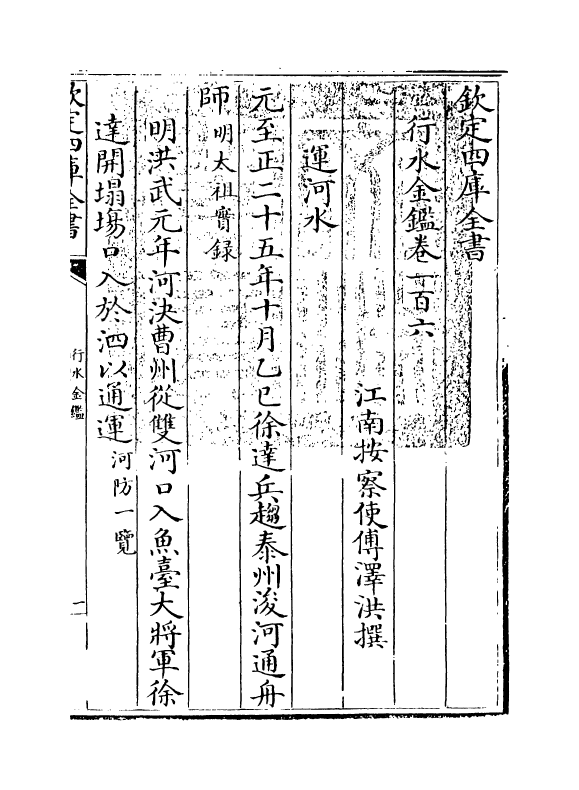 欽定四庫全書
行水金鑑卷一百六
江南按察使傅澤洪撰
運河水
元至正二十五年十月乙巳徐達兵趨泰州浚河通舟
師明太祖實録
明洪武元年河決曹州從雙河口入魚臺大將軍徐
達開塌塲口入於泗以通運河防一覽
欽定四庫全書
行水金鑑
一